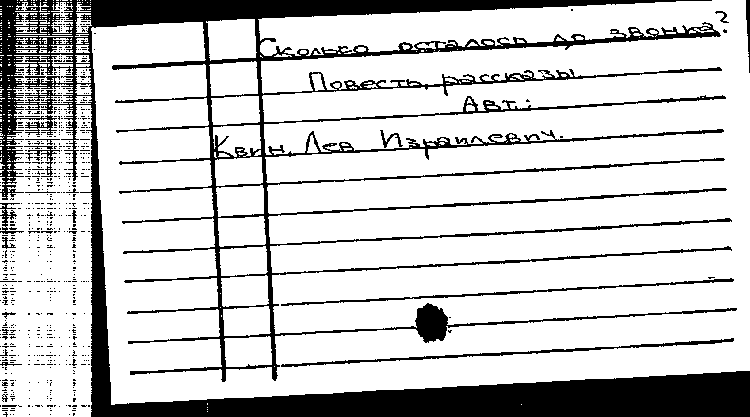 Сколько осталось до звонка?
Повесть, рассказы.
Авт.:
Квин, Лев Израилевич.